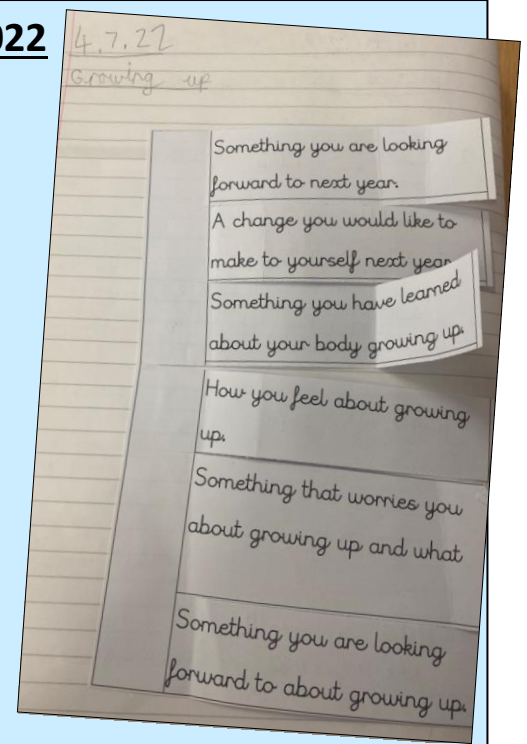 022
4.7.22
Growing up
Something you are looking
forward to next year.
A change you would like to
make to yourself next year
Something you have learned
about your body growing up.
How you feel about growing
up.
Something that worries you
about growing up and what
Something you are looking
forward to about growing up.